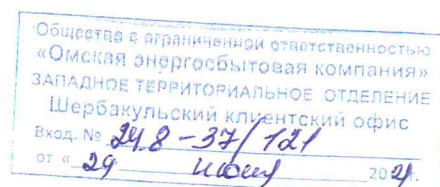 Общество с ограниченной ответственностью
«Омская энергосбытовая компания»
ЗАПАДНОЕ ТЕРРИТОРИАЛЬНОЕ ОТДЕЛЕНИЕ
Шербакульский клиентский офис
Вход. № 24.8-37/121
от « 29 июня 2021.